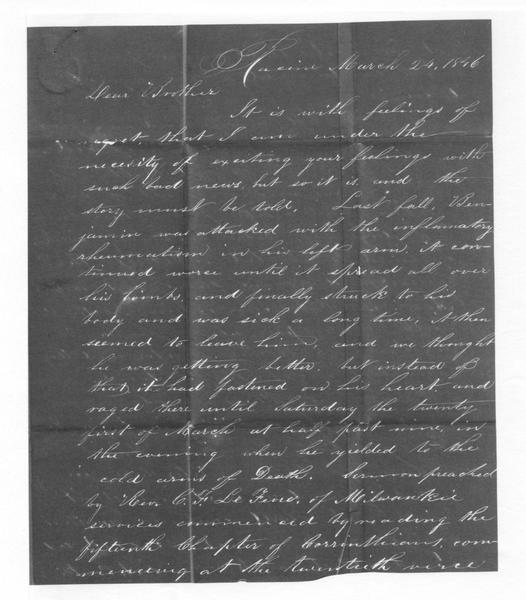 Racine March 24, 1846
Dear Brother
It is with feelings of
regret that I am under the
necesity of exerting your feelings with
such bad news, but so it is and the
story must be told. Last fall, Ben-
jamin was attacked with the inflamatory
rheumatism in his left arm, it con-
tinued worse until it spread all over
his limbs and finally struck to his
body and was sick a long time, it then
seemed to leave him, and we thought
he was getting better, but instead of
that, it had fastened on his heart and
raged there until Saturday the twenty
first of March at half past nine, in
the evening when he yielded to the
cold arms of Death. Sermon preached
by Rev C. Le of Milwaukie
services commenced by reading the
fifteenth Chapter of Corrinthians, com-
mencing at the twentieth verce